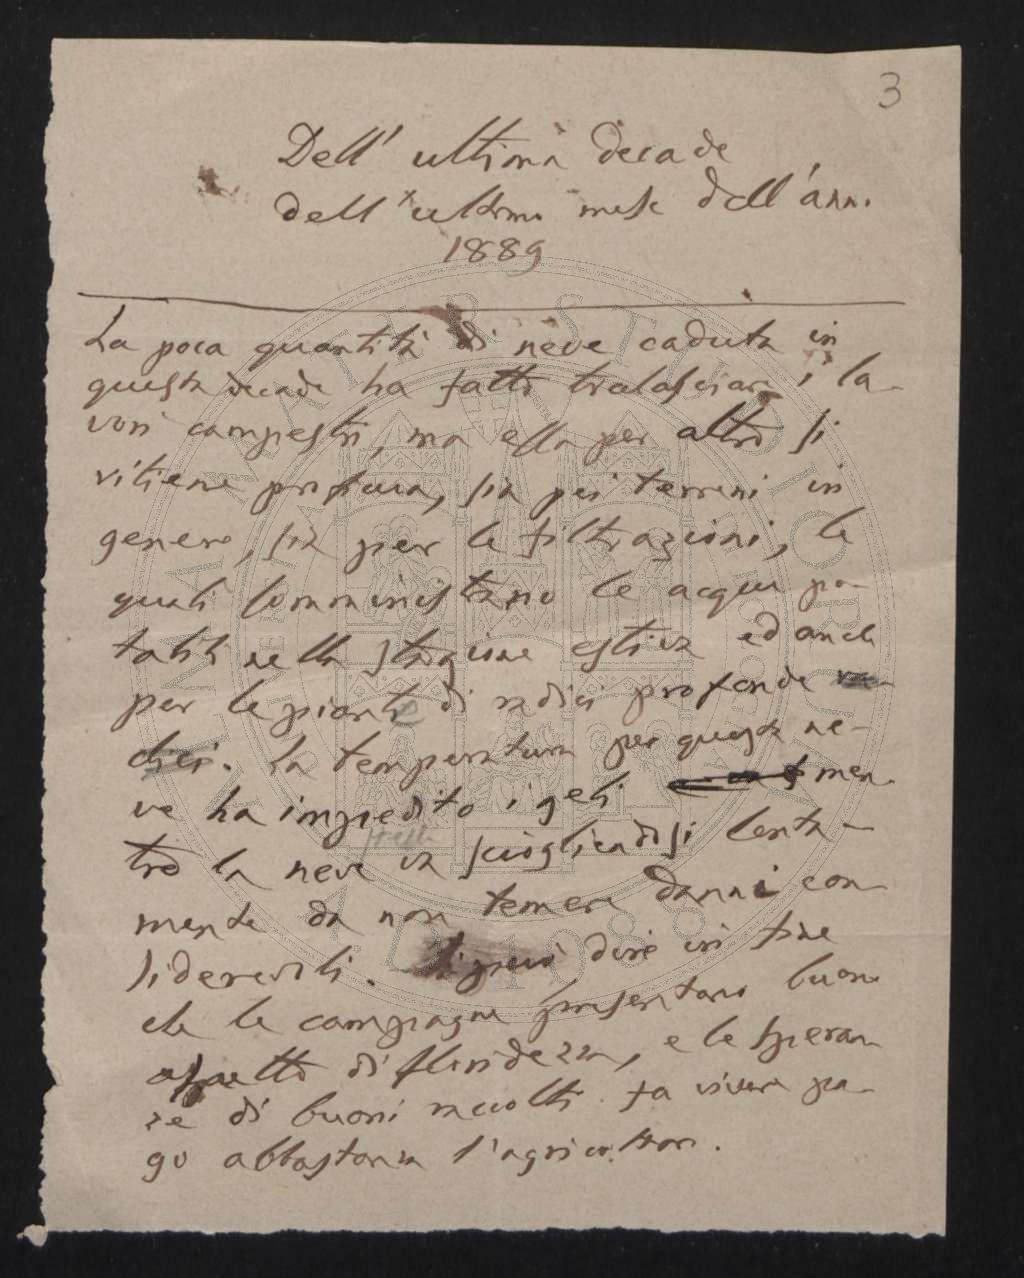 3
Dell' ultima decade
dell' ultimo mese dell' anno
1889
La poca quantità di neve caduta in
questa decade ha fatto tralasciare i la-
vori campestri, ma essa per altro si
ritiene proficua, sia pei terreni in
genere, sia per le filtrazioni, le
quali somministrano le acque po-
tabili nella stagione estiva ed anche
per le piante di radici profonde ra-
dici. La temperatura per questa ne-
ve ha impedito i geli men-
tre la neve va sciogliendosi lenta-
mente da non temere danni con-
siderevoli. Si può dire in fine
che le campagne presentano buono
aspetto di floridezza, e le speran-
ze di buoni raccolti fa vivere pa-
go abbastanza l'agricoltore.